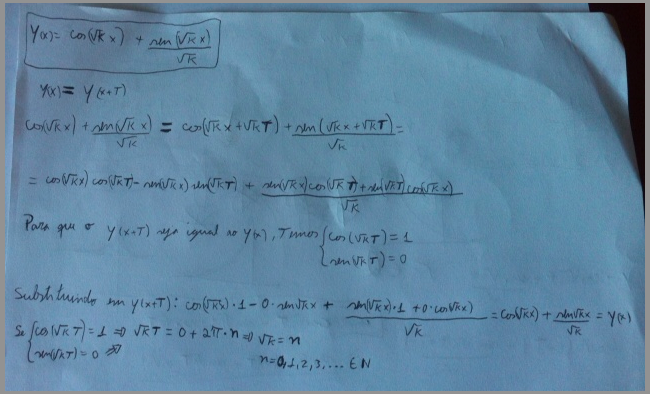 Y(x)= cos(√k x) + sen(√k x)/√k
Y(x) = Y(x+T)
cos(√k x) + sen(√k x)/√k = cos(√k x+√k T) + sen(√k x+√k T)/√k =
= cos(√k x) cos(√k T) - sen(√k x) sen(√k T) + sen(√k x) cos(√k T) + sen(√k T) cos(√k x)/√k
Para que o Y(x+T) seja igual ao Y(x), Temos { cos(√k T) = 1
sen(√k T) = 0
Substituindo em Y(x+T): cos(√k x)·1 - 0·sen√k x + sen(√k x)·1 + 0·cos(√k x)/√k = cos(√k x) + sen√k x/√k = Y(x)
Se { cos(√k T) = 1 ⇒ √k T = 0 + 2π·n ⇒ √k = n
sen(√k T) = 0 ⇒
n=0,1,2,3,... ∈ N